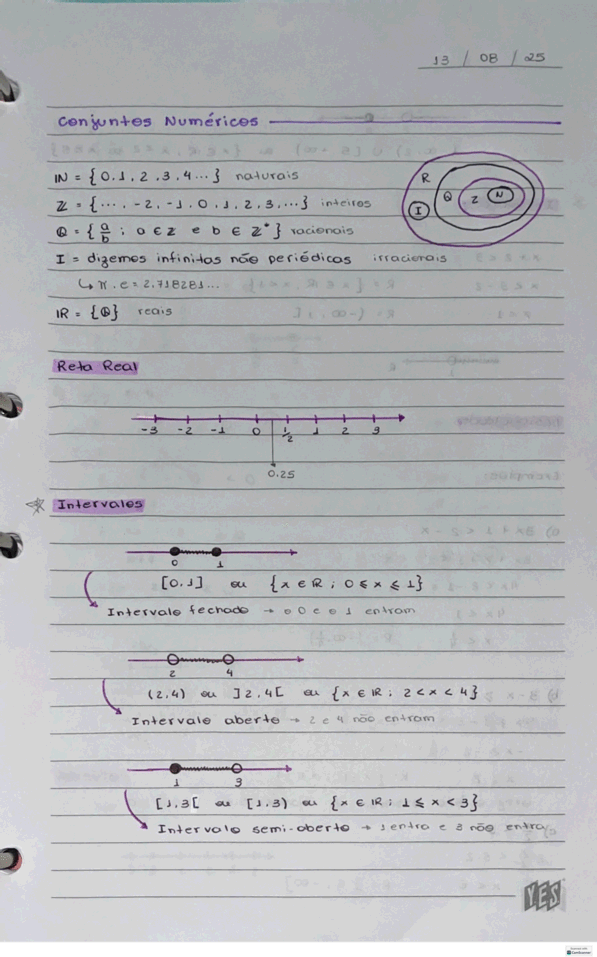 13 / 08 / 25
Conjuntos Numéricos
IN = { 0, 1, 2, 3, 4 ... } naturais
Z = { ..., -2, -1, 0, 1, 2, 3, ... } inteiros
Q = { a/b ; a ∈ Z e b ∈ Z* } racionais
I = dizemos infinitos não periódicos irracionais
↳ π, e = 2,718281...
IR = { Q } reais
R
I
Q
Z
N
Reta Real
-3 -2 -1 0 1/2 1 2 3
0.25
☆ Intervalos
0 1
[0,1] ou { x ∈ IR ; 0 ≤ x ≤ 1 }
Intervalo fechado → o 0 e o 1 entram
2 4
(2,4) ou ]2,4[ ou { x ∈ IR ; 2 < x < 4 }
Intervalo aberto → 2 e 4 não entram
1 3
[1,3[ ou [1,3) ou { x ∈ IR ; 1 ≤ x < 3 }
Intervalo semi-aberto → 1 entra e 3 não entra
YES
CamScanner